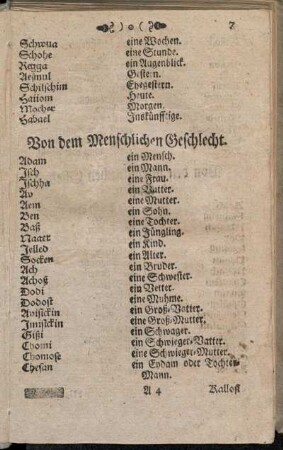 )o( 7
Schwua eine Wochen.
Schohe eine Stunde.
Regga ein Augenblick.
Gestern.
Schilschim Ehegestern.
Hajiom Heute.
Macher Morgen.
Habael Inskünfftige.
Von dem Menschlichen Geschlecht.
Adam ein Mensch.
Isch ein Mann.
Ischha eine Frau.
Av ein Vatter.
Aem eine Mutter.
Ben ein Sohn.
Baß eine Tochter.
Naaer ein Jüngling.
Jelled ein Kind.
Socken ein Alter.
Ach ein Bruder.
Achoß eine Schwester.
Dodi ein Vetter.
Dodost eine Muhme.
Avisickin ein Groß-Vatter.
Imisickin eine Groß-Mutter.
Gißi ein Schwager.
Chomi ein Schwieger-Vatter.
Chomose eine Schwieger-Mutter.
Chesan ein Eydam oder Tochter-
Mann.
A 4 Kallost